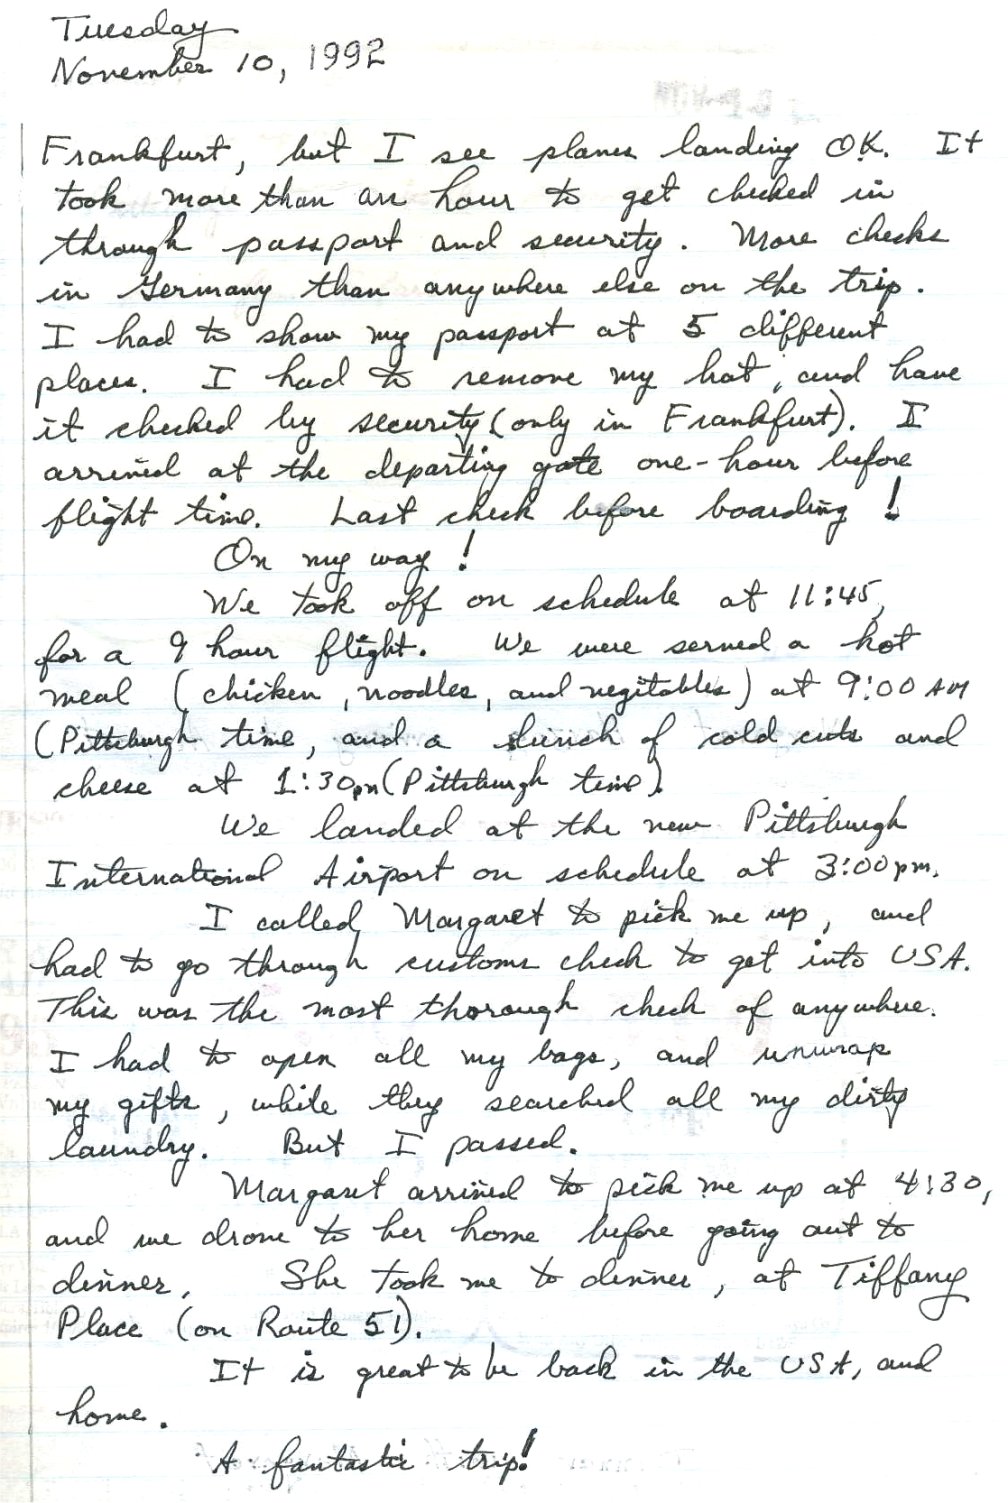 Tuesday
November 10, 1992
Frankfurt, but I see planes landing OK. It
took more than an hour to get checked in
through passport and security. More checks
in Germany than anywhere else on the trip.
I had to show my passport at 5 different
places. I had to remove my hat, and have
it checked by security (only in Frankfurt). I
arrived at the departing gate one-hour before
flight time. Last check before boarding!
On my way!
We took off on schedule at 11:45,
for a 9 hour flight. We were served a hot
meal (chicken, noodles, and vegitables) at 9:00 AM
(Pittsburgh time, and a lunch of cold cuts and
cheese at 1:30pm (Pittsburgh time).
We landed at the new Pittsburgh
International Airport on schedule at 3:00 pm.
I called Margaret to pick me up, and
had to go through customs check to get into USA.
This was the most thorough check of anywhere.
I had to open all my bags, and unwrap
my gifts, while they searched all my dirty
laundry. But I passed.
Margaret arrived to pick me up at 4:30,
and we drove to her home before going out to
dinner. She took me to dinner, at Tiffany
Place (on Route 51).
It is great to be back in the USA, and
home.
A fantastic trip!